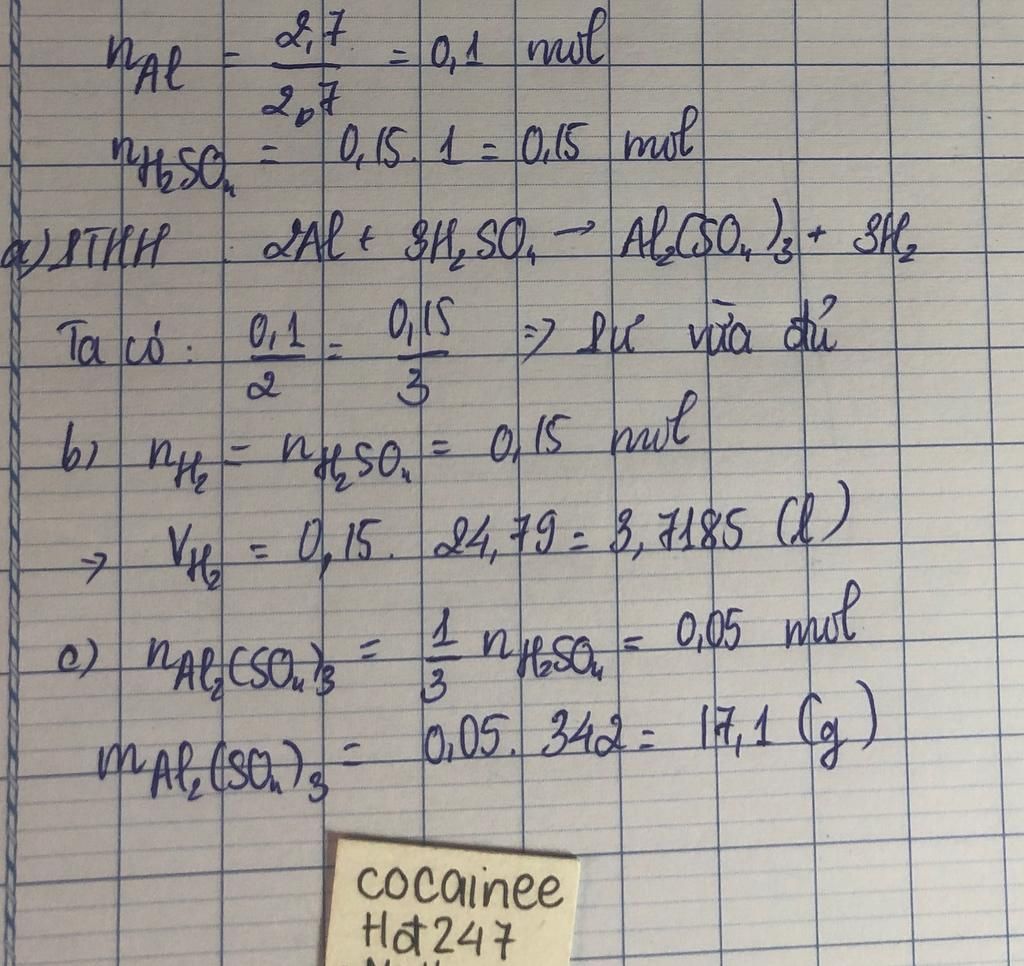 nAl = 2,7 / 2,7 = 0,1 mol
nH₂SO₄ = 0,15. 1 = 0,15 mol
a) PTHH : 2Al + 3H₂SO₄ → Al₂(SO₄)₃ + 3H₂
Ta có: 0,1/2 = 0,15/3 => Pư vừa đủ
b) nH₂ = nH₂SO₄ = 0,15 mol
=> VH₂ = 0,15. 24,79 = 3,7185 (l)
c) nAl₂(SO₄)₃ = 1/3 nH₂SO₄ = 0,05 mol
mAl₂(SO₄)₃ = 0,05. 342 = 17,1 (g)
cocainee
Hot247